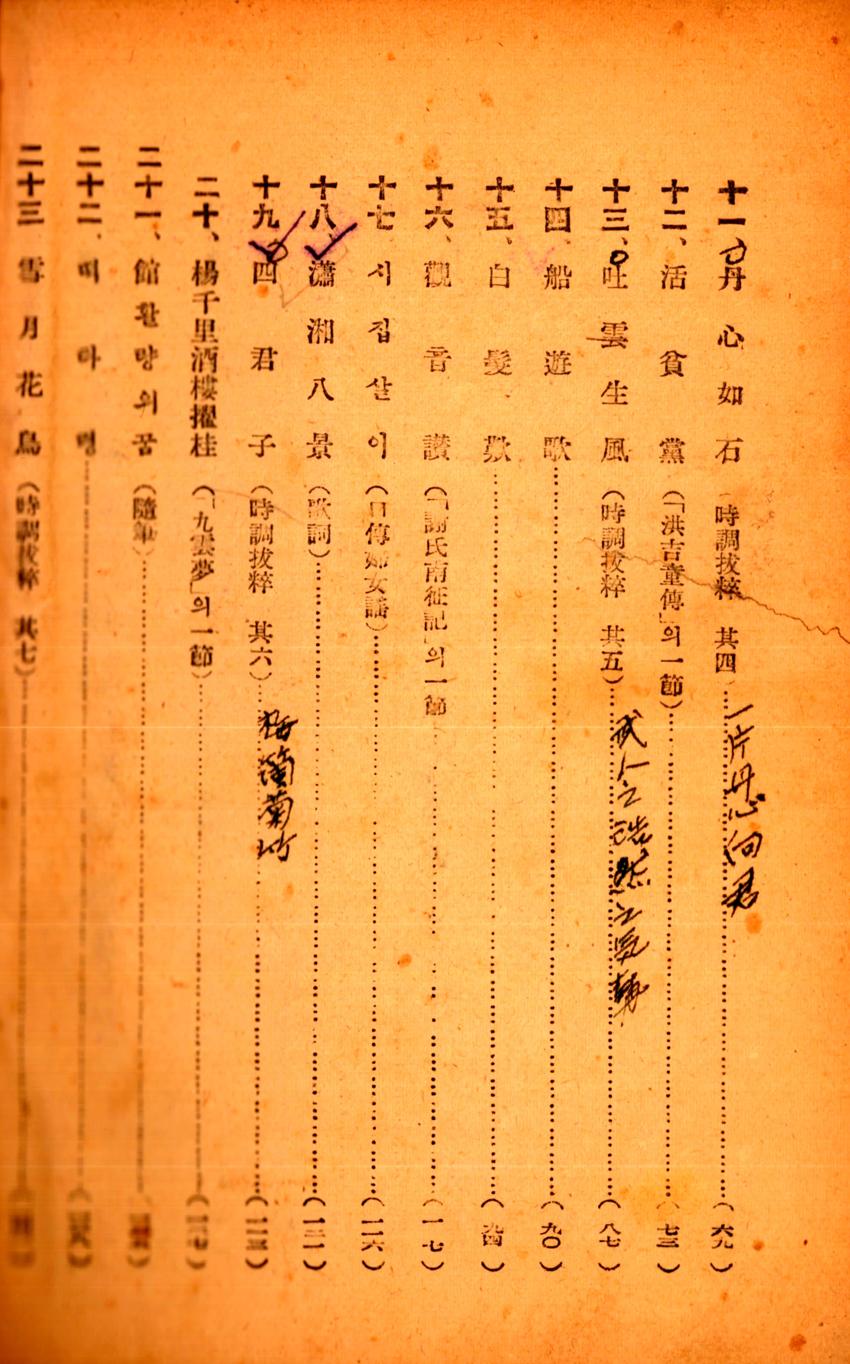 十一、丹心如石（時調拔粹 其四）……（六九）
一片丹心向君
十二、活貧黨（「洪吉童傳」의一節）……（七三）
十三、吐雲生風（時調拔粹 其五）……（八七）
武人之浩然之氣
十四、船遊歌……（九〇）
十五、白髮歎……（九四）
十六、觀音讃（「謝氏南征記」의一節……（一〇七）
十七、시집살이（口傳婦女謠）……（一一六）
十八、瀟湘八景（歌詞）……（一二一）
十九、四君子（時調拔粹 其六）……（一二三）
梅蘭菊竹
二十、楊千里酒樓擢桂（「九雲夢」의一節）……（一二七）
二十一、館활량의꿈（隨筆）……
二十二、떠타령……
二十三 雪月花鳥（時調拔粹 其七）……